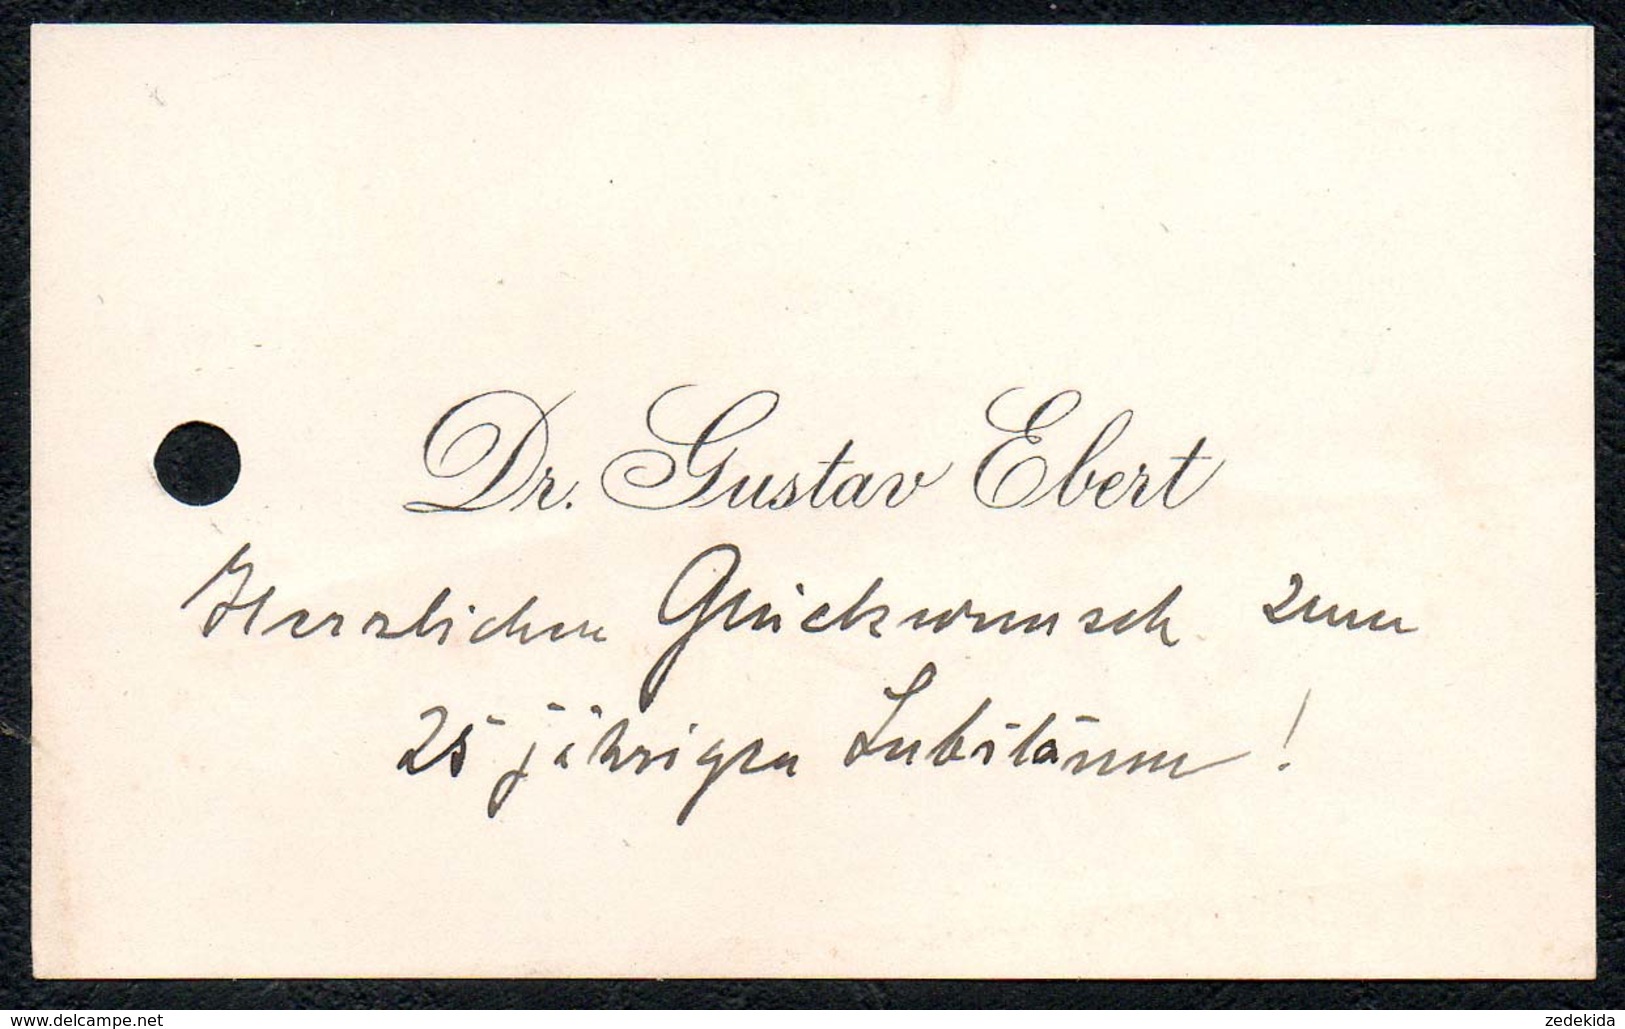 Dr. Gustav Ebert
Herzlichen Glückwunsch zum
25 jährigen Jubiläum !
www.delcampe.net
zedekida